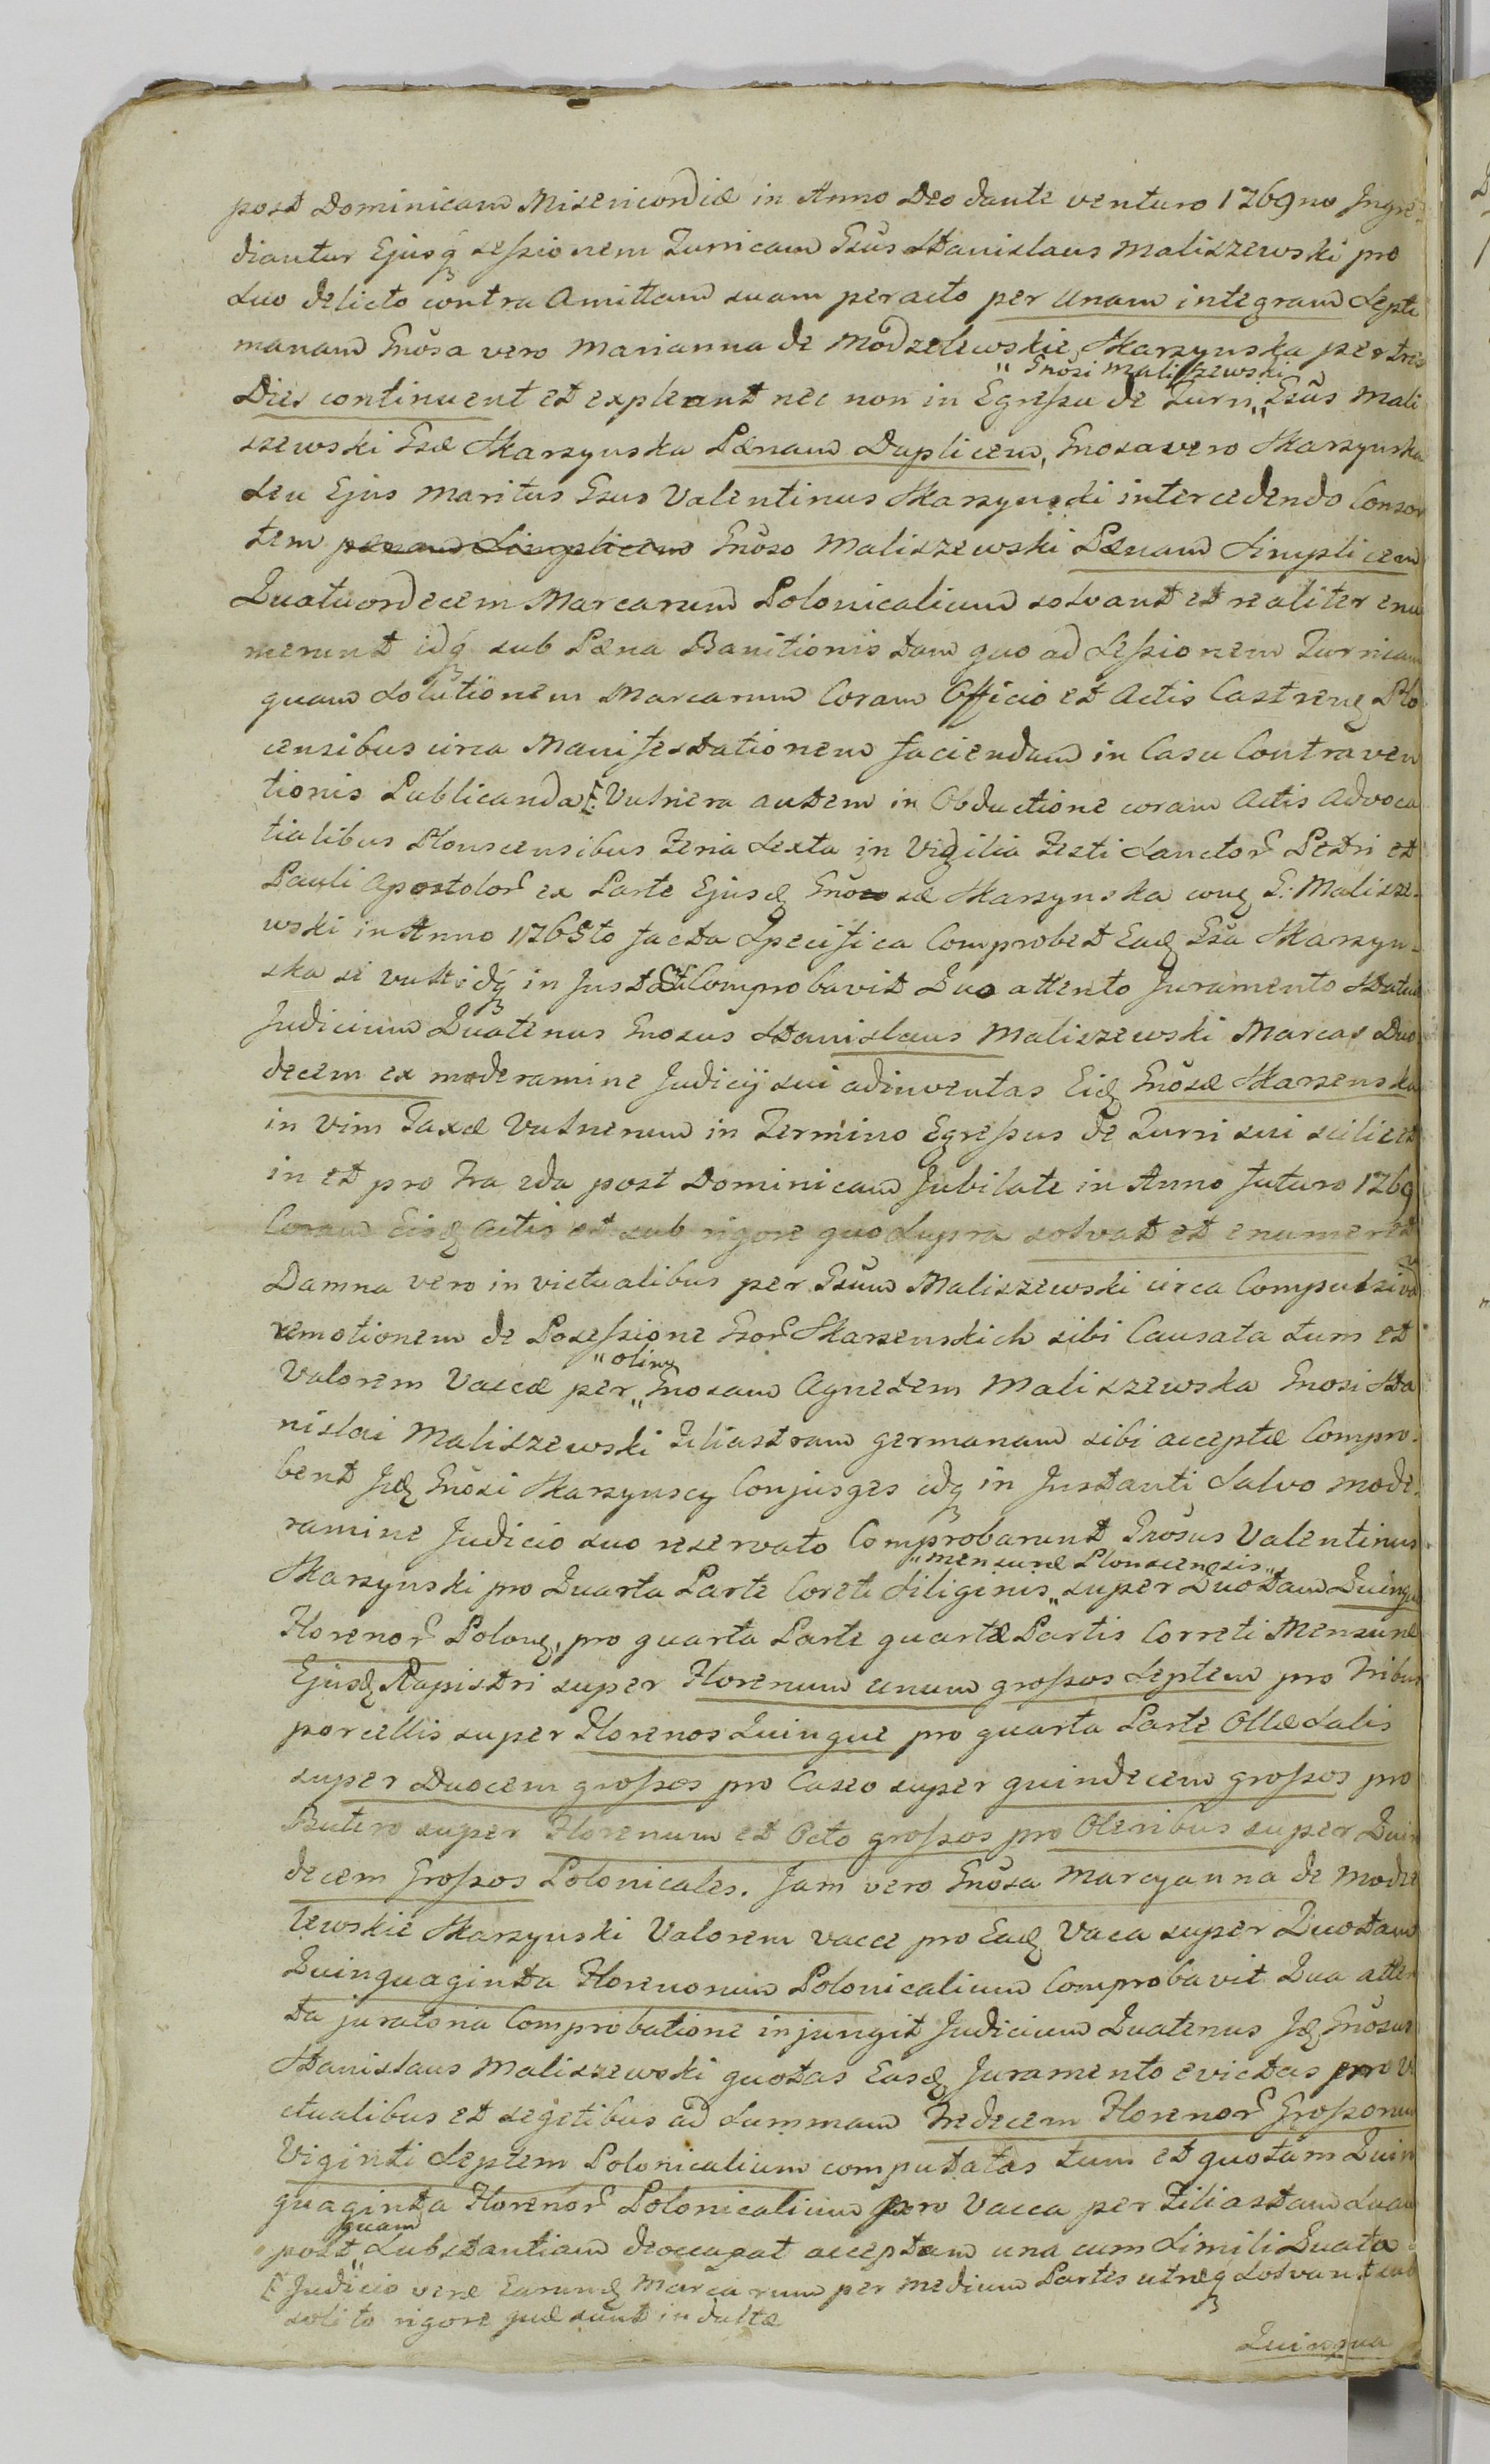 post Dominicam Misericordiæ in Anno Deo dante venturo 1769no Ingre-
diantur Ejusq sessionem Turricam Gsus Stanislaus Maliszewski pro
suo delicto contra Amittam suam peracto per unam integram Septi
manam Gnosa vero Marianna de Modzelewskie Skarzynska per tres
" Gnosi Maliszewski
Dies continuent et expleant nec non in Egressu de Turri „ Gsus Mali
szewski Gsæ Skarzynska Pænam Duplicem, Gnosa vero Skarzynska
seu Ejus Maritus Gsus Valentinus Skarzynski intercedendo Consor
tem pænam Simplicem Gnoso Maliszewski Pænam Simplicem
Quatuordecem Marcarum Polonicalium solvant et realiter enu
merent idq sub Pæna Banitionis tam quo ad Sessionem Turricam
quam Solutionem Marcarum Coram Officio et Actis Castreng Plo
censibus circa Manifestationem faciendam in Casu Contraven
tionis Publicanda Vulnera autem in Obductione coram Actis Advoca
tialibus Plonscensibus Feria Sexta in Vigilia Festi Sanctor Petri et
Pauli Apostolor ex Parte Ejusd Gnosæ Skarzynska cong G: Malisze-
wski in Anno 1765to facta Specifica Comprobet Ead Gsa Skarzyn-
ska si vult idq in Inst Comprobavit Quo attento Juramento Statuit
Judicium Quatenus Gnosus Stanislaus Maliszewski Marcas Duo
decem ex moderamine Judicij sui adinventas Eid Gnosæ Skarzenska
in Vim Taxæ Vulnerum in Termino Egressus de Turri sui scilicet
in et pro Fra 2da post Dominicam Jubilate in Anno futuro 1769
Coram Eisd Actis et sub rigore quo Supra solvat et enumeret
Damna vero in victualibus per Gsum Maliszewski circa Compulsivam
remotionem de Posessione Gsor Skarzenskich sibi Causata tum et
" olim
Valorem Vaccæ per „ Gnosam Agnetem Maliszewska Gnosi Sta
nislai Maliszewski Filiastram germanam sibi acceptæ Compro-
bent Iid Gnosi Skarzynscy Conjuges idq in Instanti Salvo mode-
ramine Judicio suo reservato Comprobarunt Gnosus Valentinus
" mensuræ Plonscensis "
Skarzynski pro Quarta Parte Coreti Siliginis „ super Quotam Quinque
Florenor Polong, pro quarta Parte quartæ Partis Correti Mensuræ
Ejusd Rapistri super Florenum unum grossos Septem pro Tribus
porcellis super Florenos Quinque pro quarta Parte Ollæ Salis
super Duocem grossos pro Caseo super quindecem grossos pro
Butero super Florenum et Octo grossos pro Oleribus super Quin
decem Grossos Polonicales. Jam vero Gnosa Maryanna de Modze
lewskie Skarzynski Valorem vacce pro Ead Vaca super Quotam
Quinquaginta Florenorum Polonicalium Comprobavit Qua atten
ta juratoria Comprobatione injungit Judicium Quatenus Id Gnosus
Stanislaus Maliszewski quotas Easd Juramento evictas pro Vi
ctualibus et segetibus ad Summam Tredecem Florenor Grossorum
Viginti Septem Polonicalium computatas tum et quotam Quin
quaginta Florenor Polonicalium pro Vacca per Filiastram Suam
quam
post „ Substantiam deoccupat acceptam una cum Simili Quota
Judicio veræ Earumd Marcarum per medium Partes utræq Solvant sub
solito rigore quæ sunt indultæ
Quinqua